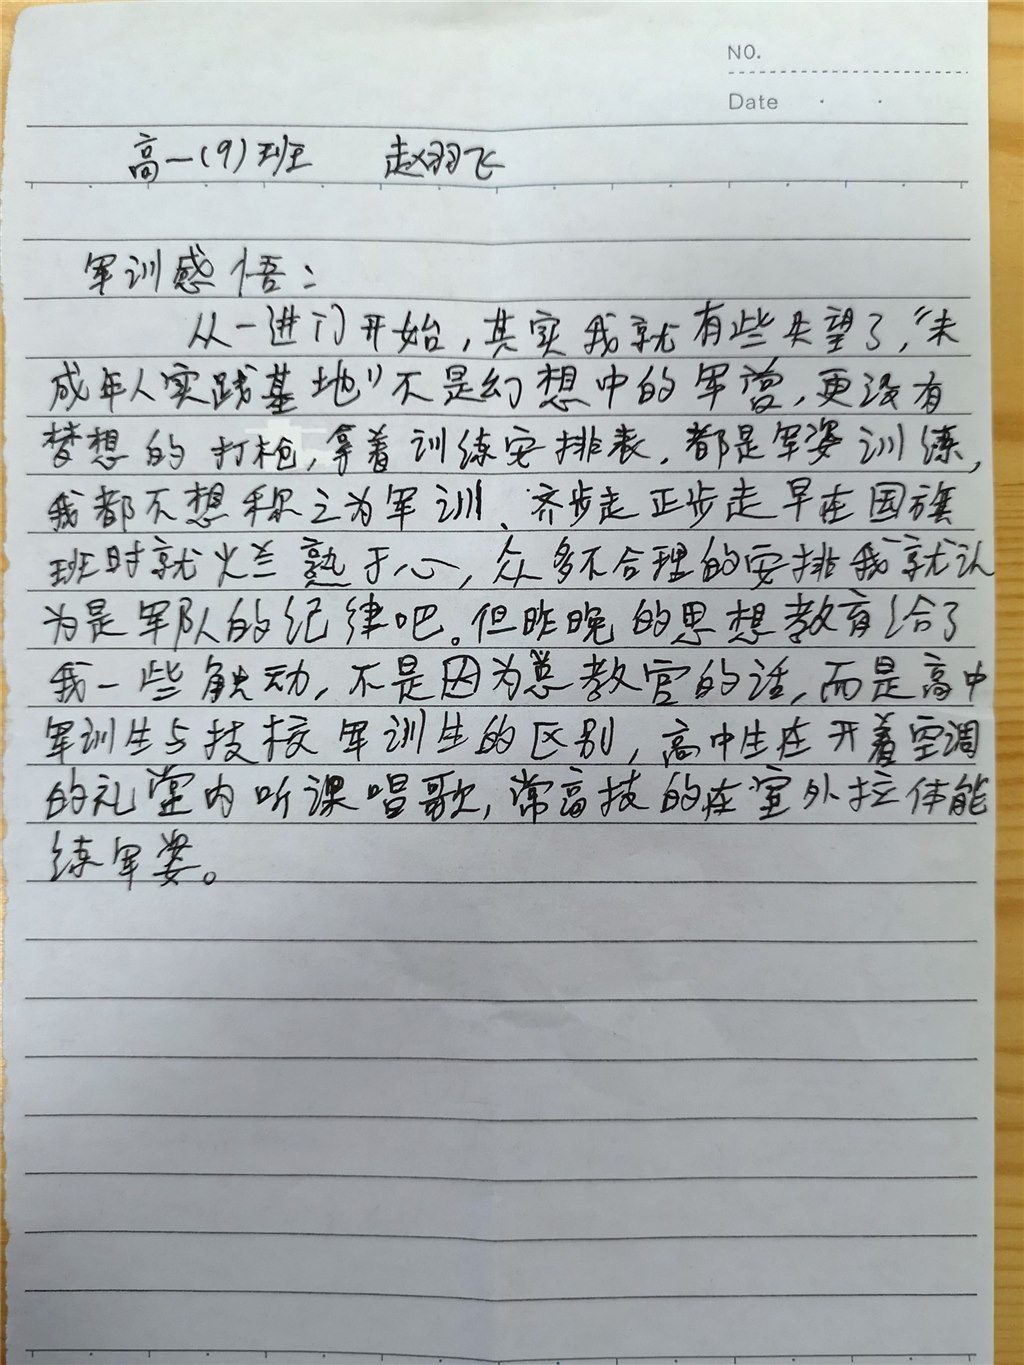 NO.
Date
高一(9)班 赵羽飞
军训感悟：
从一进门开始，其实我就有些失望了，“未
成年人实践基地”不是幻想中的军营，更没有
梦想的打枪，拿着训练安排表，都是军姿训练，
我都不想称之为军训、齐步走正步走早在国旗
班时就烂熟于心，众多不合理的安排我就认
为是军队的纪律吧。但昨晚的思想教育给了
我一些触动，不是因为总教官的话，而是高中
军训生与技校军训生的区别，高中生在开着空调
的礼堂内听课唱歌，常高技的在室外拉体能
练军姿。